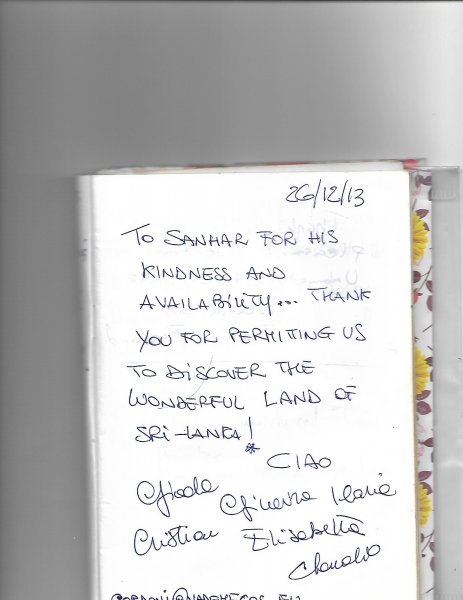 26/12/13
TO SANHAR FOR HIS
KINDNESS AND
AVAILABILITY... THANK
YOU FOR PERMITING US
TO DISCOVER THE
WONDERFUL LAND OF
SRI-LANKA!
*
CIAO
Giada
Ginevra Ilaria
Cristian Elisabetta
Claudio